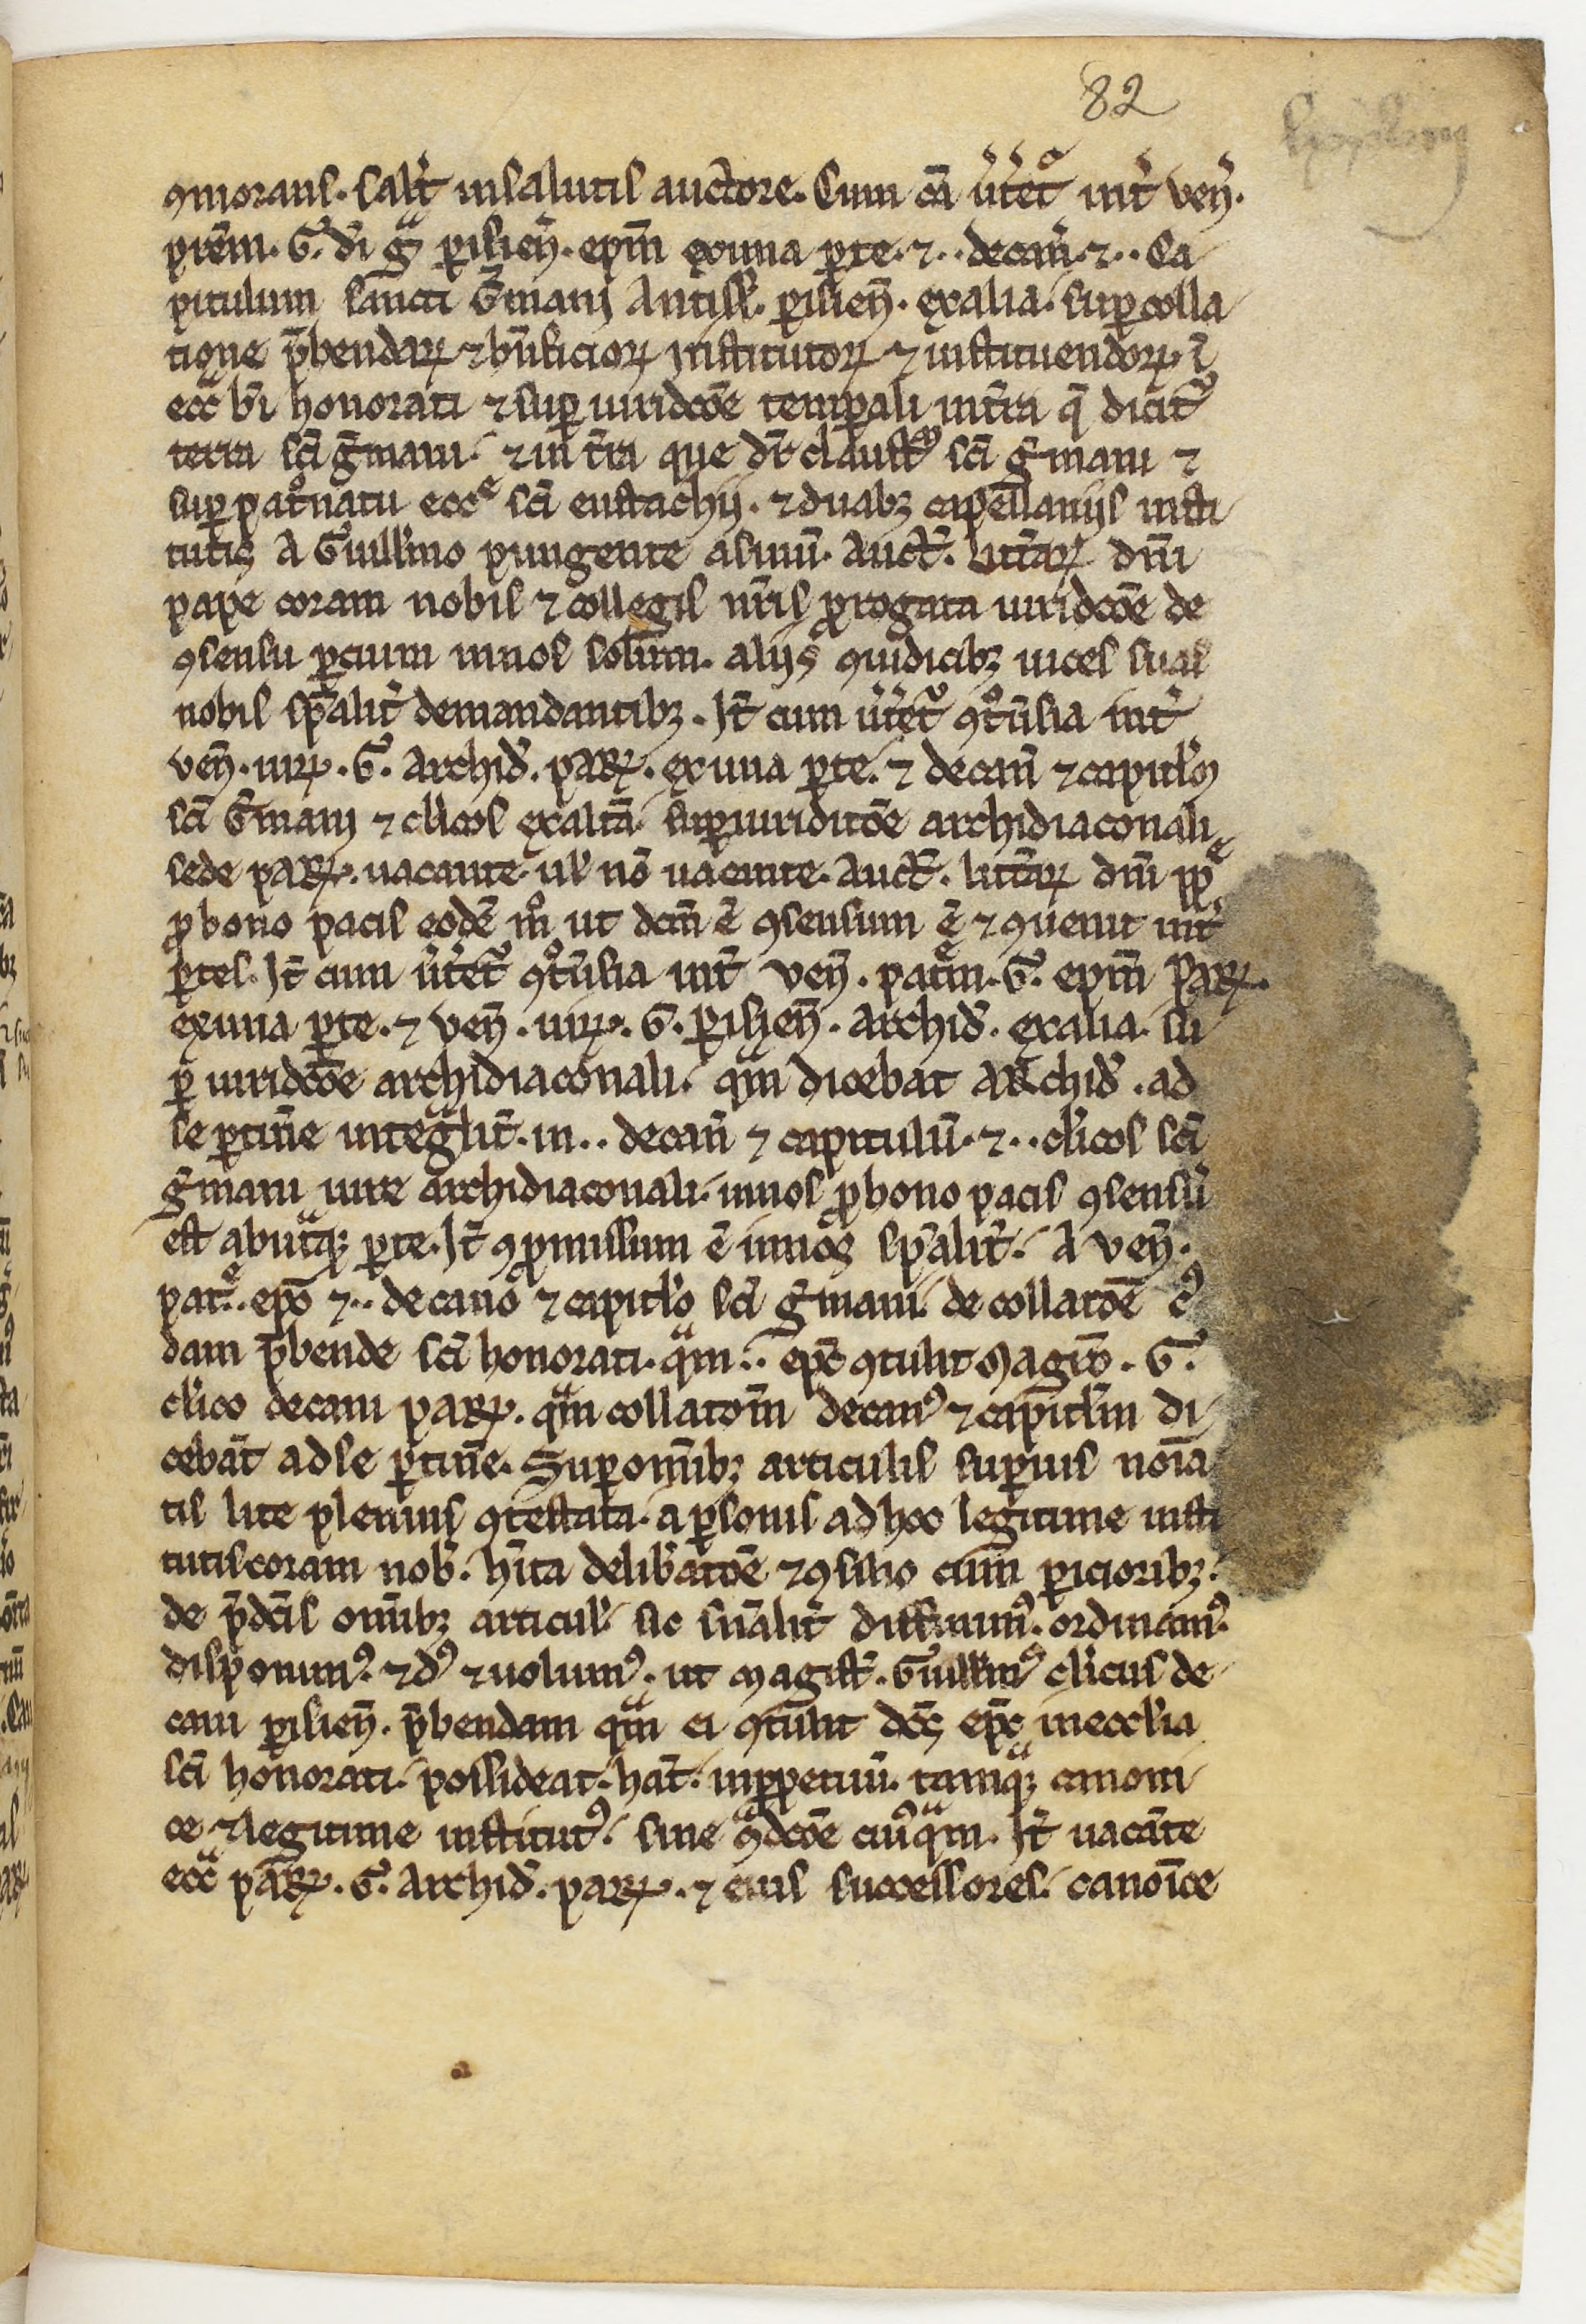 82
ꝯmorans. salt̃ in salutis auctore. Cum cã ũtet᷑ int̾ ven̾.
pr̃em. G. di gͣ ꝑisien̄. ep̃m ex una ꝑte. ⁊ .. decan̾. ⁊ .. Ca
pitulum sancti G̾mani Antiss̾. ꝑisien̄. ex alia. suꝑ colla
tione p̄bendaꝝ ⁊ bñficioꝝ institutoꝝ ⁊ instituendoꝝ ĩ
ecc̃a bĩ honorati ⁊ suꝑ iuridcõe temꝑali in t̾ra q̄ dicit᷑
terra sc̃i g̾mani. ⁊ in t̾ra que dr̃ claustrͫ sc̃i g̾mani ⁊
suꝑ pat°natu ecc̃e sc̃i eustachij. ⁊ duabꝫ capellanijs insti
tutis a Guill̾mo pungente asinũ. Auct̾. litt̾aꝝ dñi
pape coram nobis ⁊ collegis nr̃is ꝓrogata iuridcõe de
ꝯsensu ꝑcium in nos solum. alijs ꝯiudicibꝫ uices suas
nobis sp̃alit̾ demandantibꝫ. Jt̃ cum ũtet᷑ ꝯt°ũsia int̾
ven̄. uiꝝ. G. archid̾. paꝝ. ex una ꝑte. ⁊ decan̄ ⁊ capitl̾m
sc̃i G̾mani ⁊ cl̾icos ex alt̾a. suꝑ iuriditõe archidiaconali
sede paꝝ. uacante ul̾ nõ uacante. Auct̾. litt̾aꝝ dñi pp̃e
ꝓ bono pacis eodẽ m° ut dcm̃ ẽ ꝯsensum ẽ ⁊ ꝯuenit int̾
ꝑtes. Jt̃ cum ũtet᷑ ꝯt°ũsia int̾ ven̄. patrẽm. G. ep̃m paꝝ.
ex una ꝑte. ⁊ ven̄. uiꝝ. G. ꝑisien̄. archid̾. ex alia. su
ꝑ iuridcõe archidiaconali. qͣm dicebat archid̾. ad
se ꝑtiñe integͣlit̾. in .. decan̄ ⁊ capitulũ. ⁊ .. cl̾icos sc̃i
g̾mani iure archidiaconali. in nos ꝓ bono pacis ꝯsensũ
est ab utͣqꝫ ꝑte. Jt̃ ꝯꝓmissum ẽ in nos sp̃alit̾. a ven̄.
patᵉ. .. ep̃o ⁊ .. decano ⁊ capitl̾o sc̃i g̾mani. de collatõe cꝰ
dam p̄bende sc̃i honorati. qͣm .. ep̃c ꝯtulit Magiro. G.
cl̾ico decani paꝝ. qͣm collatom̃ decanꝰ ⁊ capitl̾m di
cebãt ad se ꝑtiñe. Suꝑ om̃ibꝫ articulis suꝑius noĩa
tis lite plenius ꝯtestata. a ꝑsonis ad hoc legitime insti
tutis coram nob̾. hĩta delib̾atõe ⁊ ꝯsilio cum ꝑicioribꝫ.
de p̄dc̃is om̃ibꝫ articul̾ sic fiñalit̾ diffinimꝰ. ordinamꝰ.
disponimꝰ. ⁊ dꝰ ⁊ uolumꝰ. ut magist̾. Guill̾mꝰ cl̾icus de
cani ꝑisien̄. p̄bendam qͣm ei ꝯtulit dc̃s ep̃c in eccl̾ia
sc̃i honorati. possideat. hat̾. in ꝑpetuũ. tamqͣꝫ canoni
ce ⁊ legitime institutꝰ. sine ꝯͣdcõe cuiꝰqͣm. Jt̃ uacãte
ecc̃a paꝝ. G. archid̾. paꝝ. ⁊ eius successores. canoĩce